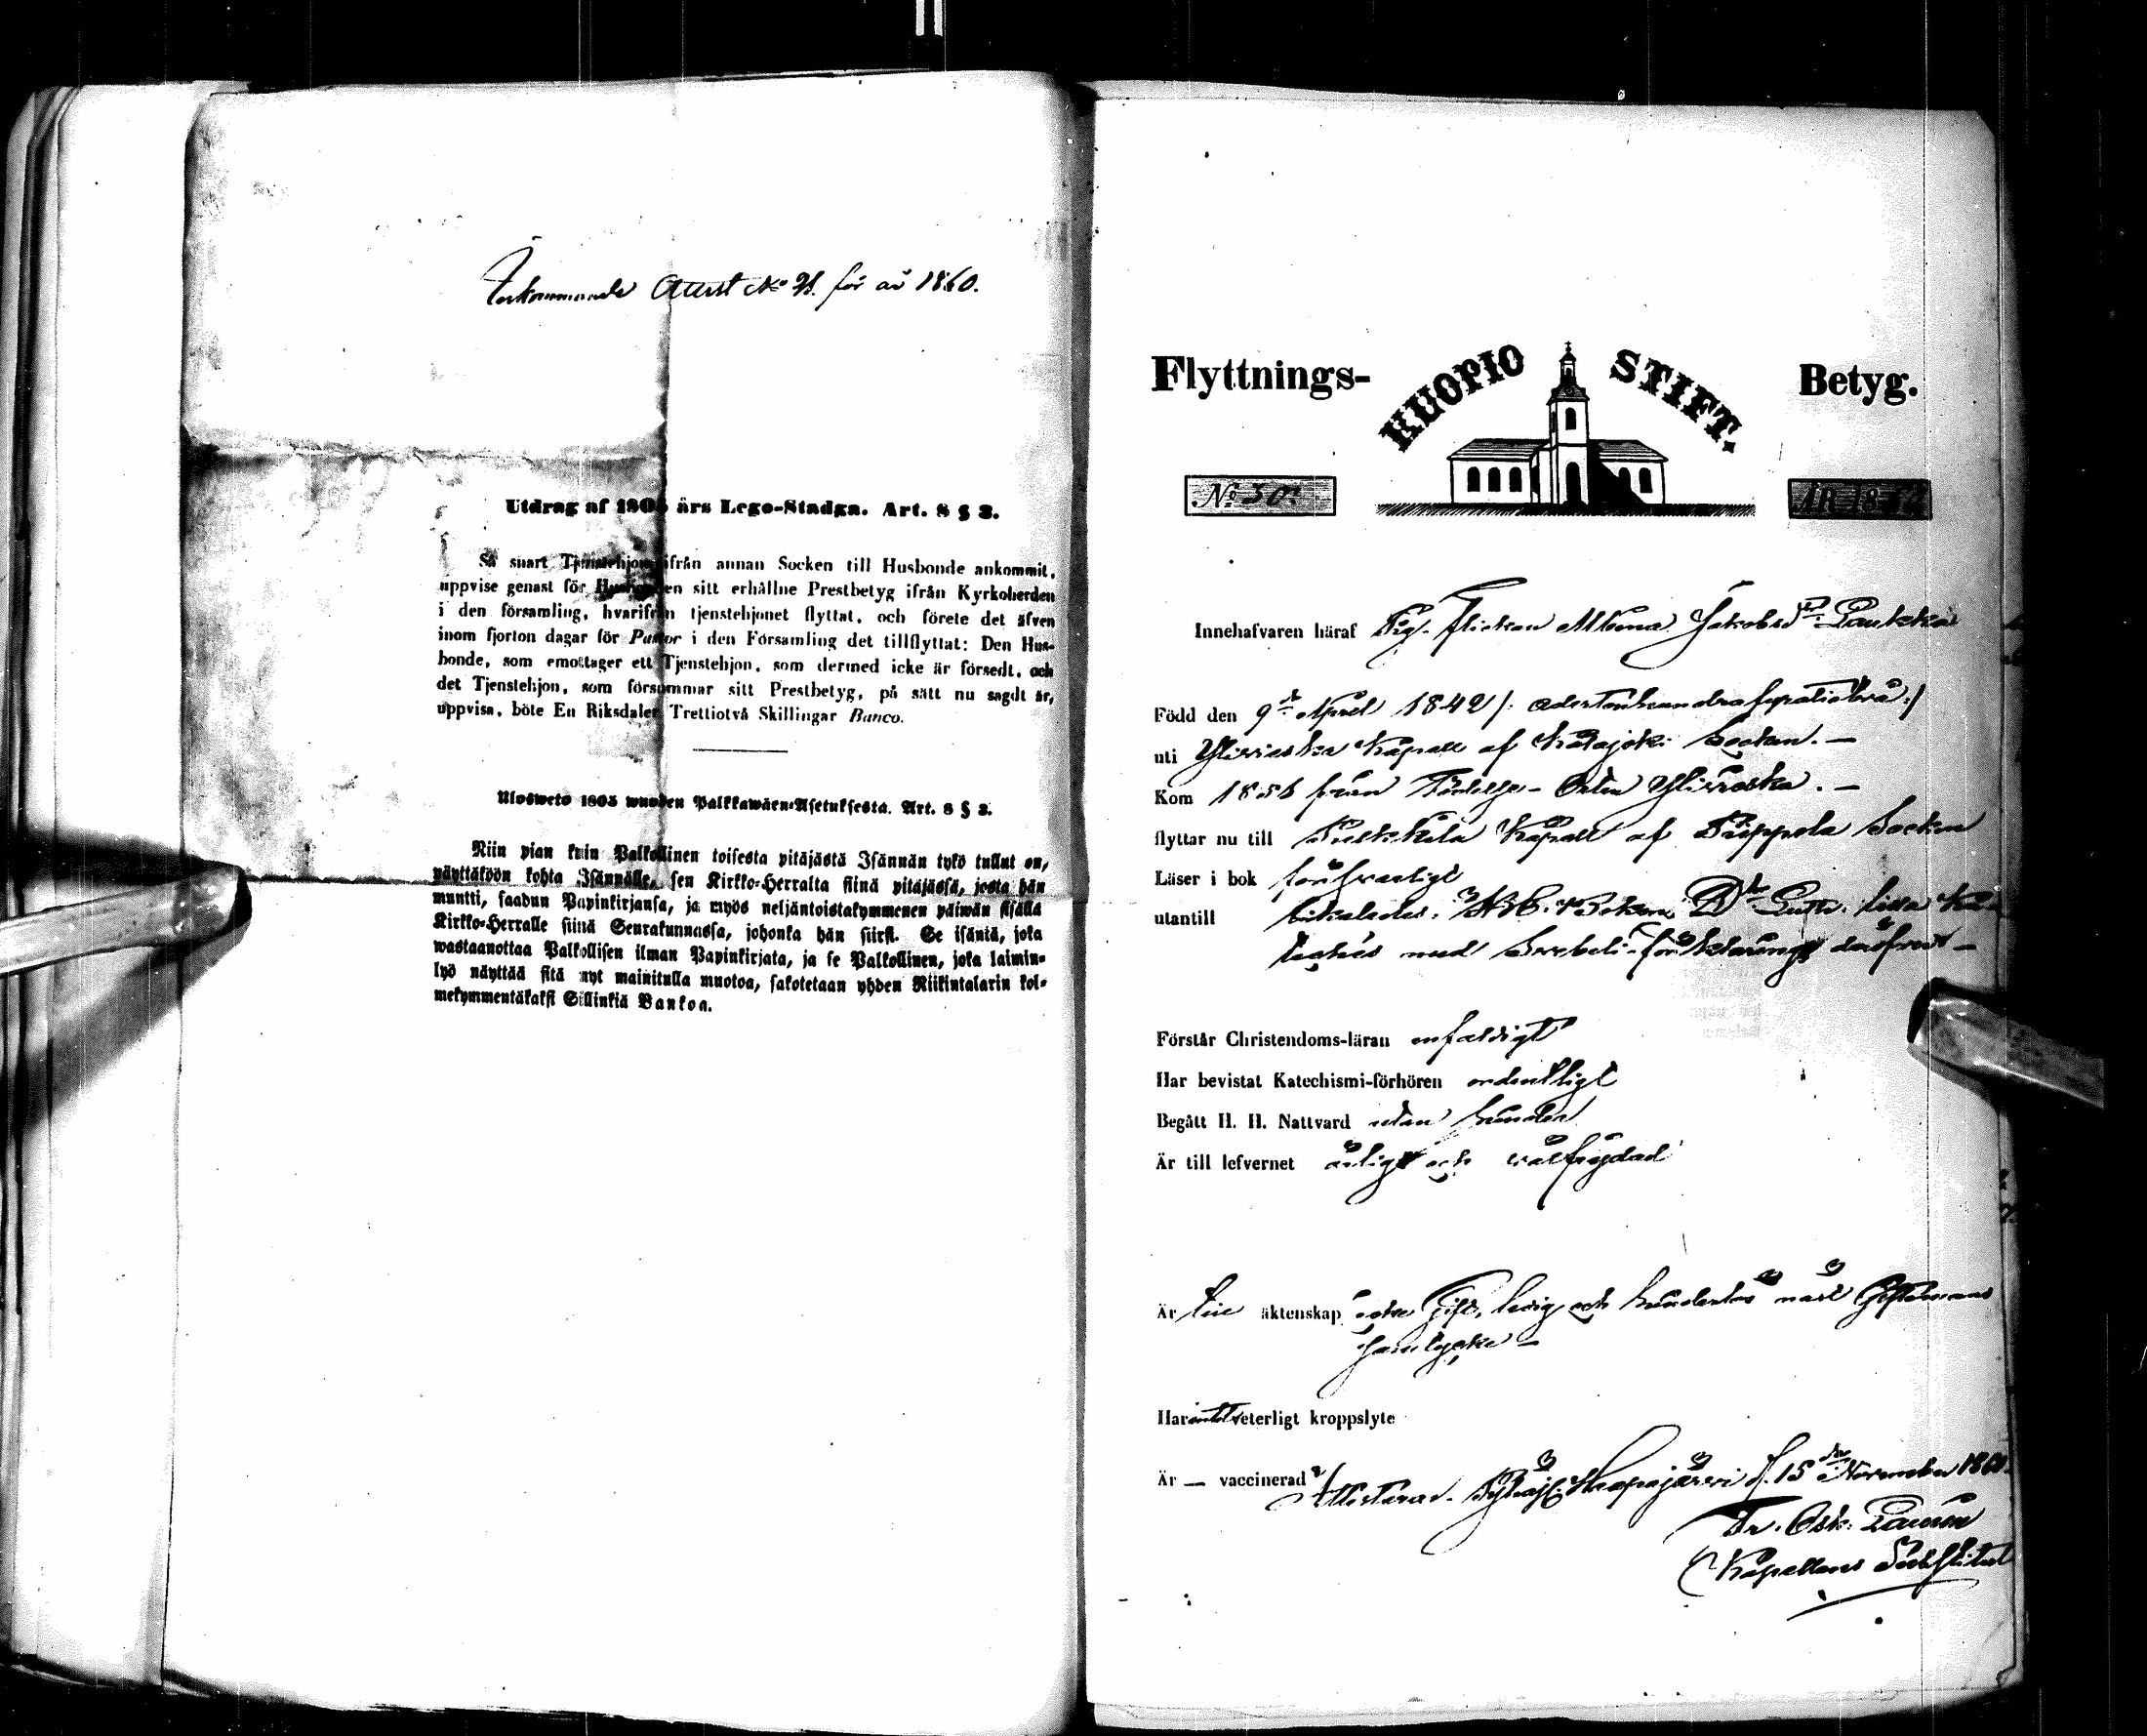 Inkommande Attest No 21. för år 1860.
Utdrag af 1805 års Lego-Stadga. Art. 8 § 3.
Så snart Tjenstehjon ifrån annan Socken till Husbonde ankommit,
uppvise genast för Husbonden sitt erhållne Prestbetyg ifrån Kyrkoherden
i den församling, hvarifrån tjenstehjonet flyttat, och förete det äfven
inom fjorton dagar för Pastor i den Församling det tillflyttat: Den Hus-
bonde, som emottager ett Tjenstehjon, som dermed icke är försedt, och
det Tjenstehjon, som försummar sitt Prestbetyg, på sätt nu sagdt är,
uppvisa, böte En Riksdaler Trettiotvå Skillingar Banco.
Ulosweto 1805 wuoden Palkkawäen-Asetuksesta. Art. 8 § 3.
Niin pian kuin Palkollinen toisesta pitäjästä Isännän tykö tullut on,
näyttäköön kohta Isännälle, sen Kirkko-Herralta siinä pitäjässä, josta hän
muutti, saadun Papinkirjansa, ja myös neljäntoistakymmenen päiwän sisällä
Kirkko-Herralle siinä Seurakunnassa, johonka hän siirsi. Se isäntä, joka
wastaanottaa Palkollisen ilman Papinkirjata, ja se Palkollinen, joka laimin-
lyö näyttää sitä nyt mainitulla muotoa, sakotetaan yhden Riikintalarin kol-
mekymmentäkaksi Sillinkiä Bankoa.
Flyttnings- KUOPIO STIFT. Betyg.
No 50. ÅR 18
Innehafvaren häraf Pig. Flickan Jakobsdr
Född den 9de April 1842 /: adertonhundrafyratiotvå :/
uti Ylivieska Kapell af Kalajoki Socken. —
Kom 1856 från Födelse-Orten Ylivieska. —
flyttar nu till Pulkkila Kapell af Piippola Socken
Läser i bok försvarligt
utantill Luth. lilla
med förklaring
Förstår Christendoms-läran enfaldigt
Har bevistat Katechismi-förhören ordentligt
Begått H. H. Nattvard utan hinder
Är till lefvernet ärlig och välfrejdad
Är till äktenskap icke Gift, ledig och hinderlös med Giftomans
samtycke —
Har intet veterligt kroppslyte
Är — vaccinerad Attesterar. Pyhäj: Haapajärvi d. 15de November 1860.
Fr. Osk.
Kapellans Substitut